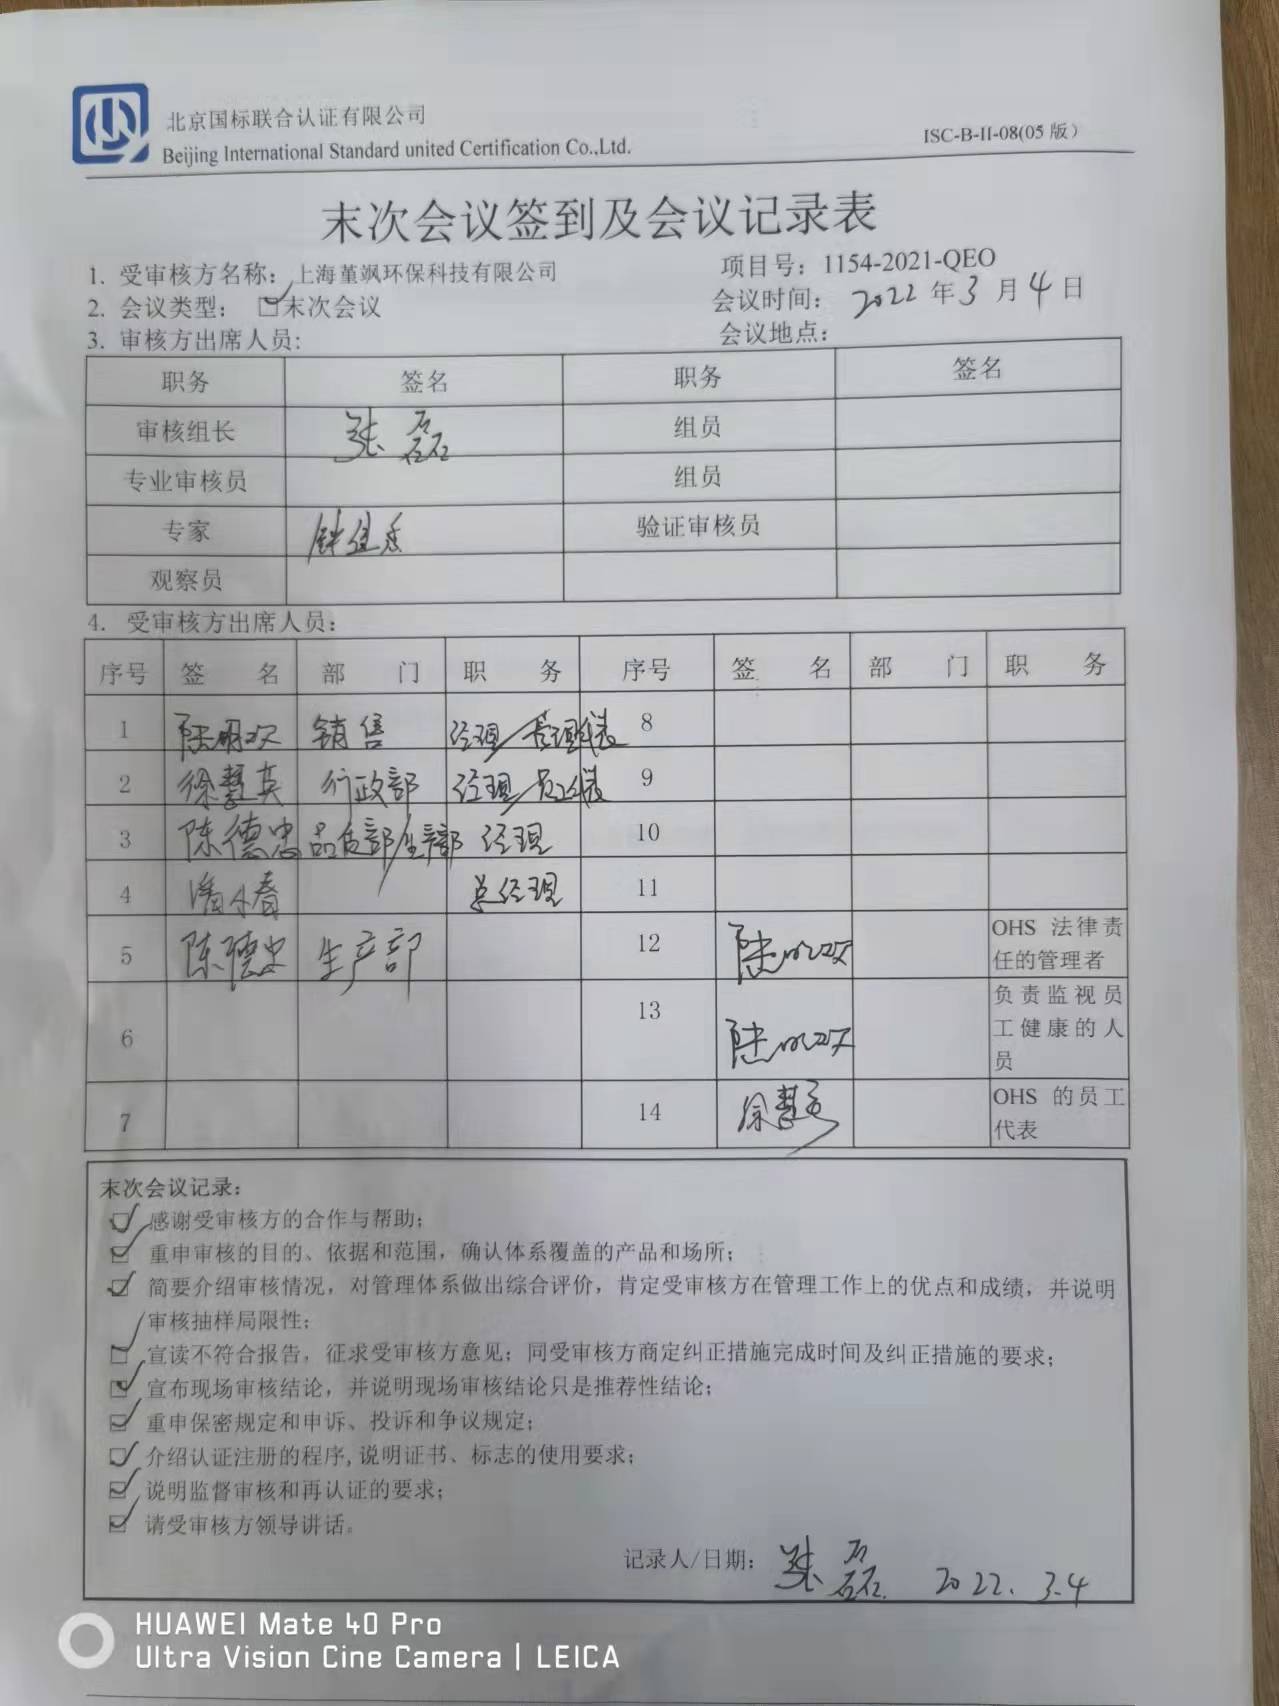 北京国标联合认证有限公司
Beijing International Standard united Certification Co.,Ltd.
ISC-B-II-08(05 版)
末次会议签到及会议记录表
1. 受审核方名称: 上海堇飒环保科技有限公司 项目号: 1154-2021-QEO
2. 会议类型: 末次会议 会议时间: 2022 年 3 月 4 日
3. 审核方出席人员: 会议地点:
职务 签名 职务 签名
审核组长 张磊 组员
专业审核员 组员
专家 验证审核员
观察员
4. 受审核方出席人员:
序号 签 名 部 门 职 务 序号 签 名 部 门 职 务
1 销售 经理/管理代表 8
2 徐慧英 行政部 经理/员工代表 9
3 陈德忠 品质部/ 经理 10
4 总经理 11
5 陈德忠 生产部 12 OHS 法律责
任的管理者
6 13 负责监视员
工健康的人
员
7 14 徐慧英 OHS 的员工
代表
末次会议记录:
感谢受审核方的合作与帮助;
重申审核的目的、依据和范围，确认体系覆盖的产品和场所;
简要介绍审核情况，对管理体系做出综合评价，肯定受审核方在管理工作上的优点和成绩，并说明
审核抽样局限性;
宣读不符合报告，征求受审核方意见；同受审核方商定纠正措施完成时间及纠正措施的要求;
宣布现场审核结论，并说明现场审核结论只是推荐性结论;
重申保密规定和申诉、投诉和争议规定;
介绍认证注册的程序,说明证书、标志的使用要求;
说明监督审核和再认证的要求;
请受审核方领导讲话。
记录人/日期: 张磊 2022.3.4
HUAWEI Mate 40 Pro
Ultra Vision Cine Camera | LEICA